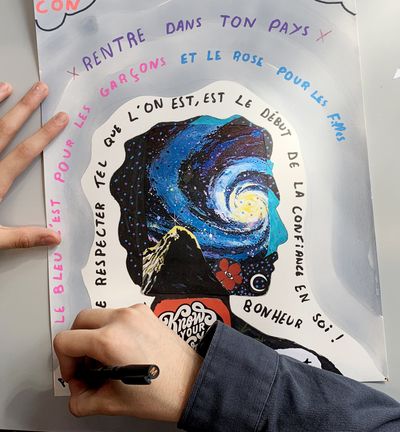 CON
x RENTRE DANS TON PAYS x
LE BLEU C'EST POUR LES GARÇONS ET LE ROSE POUR LES FILLES
E RESPECTER TEL QUE L'ON EST, EST LE DÉBUT DE LA CONFIANCE EN SOI !
BONHEUR
KNOW
YOUR